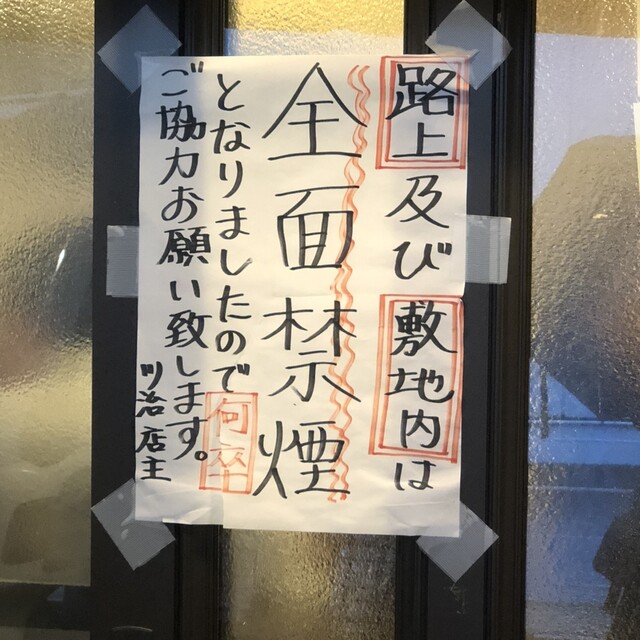 路上及び敷地内は
全面禁煙
となりましたので何卒
ご協力お願い致します。
川治店主